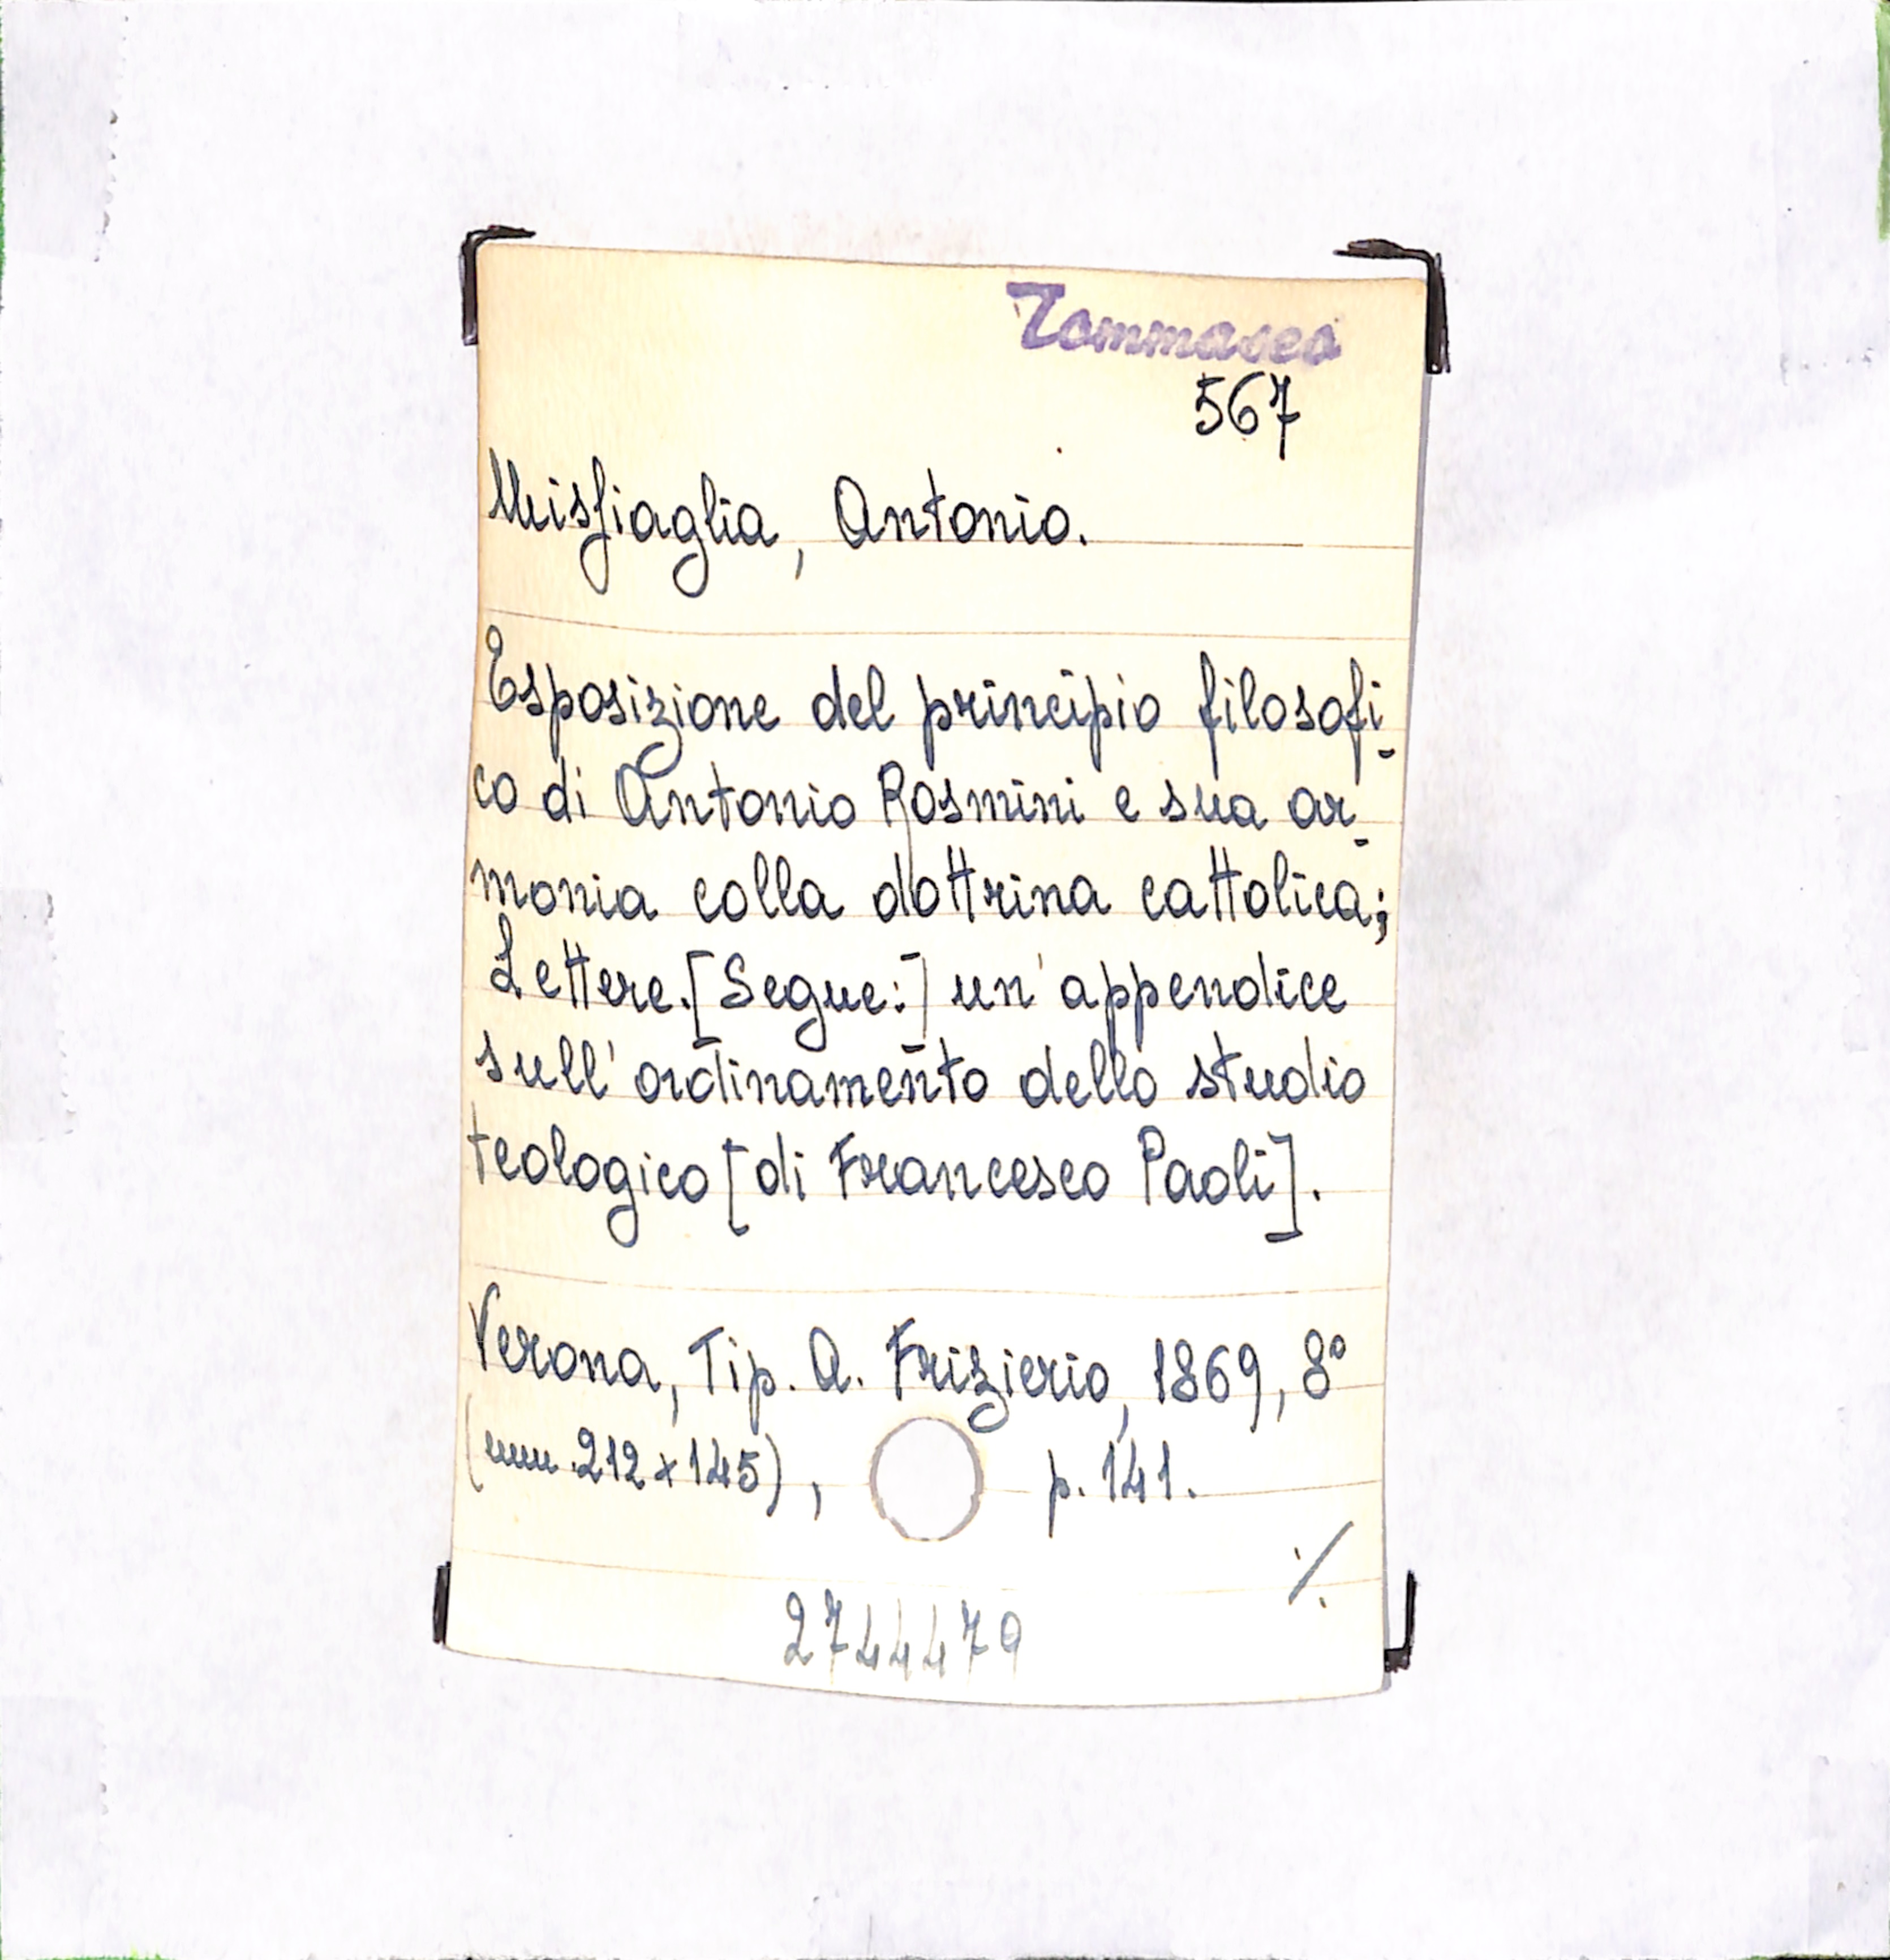 Tommaseo
567
Misfiaglia, Antonio.
Esposizione del principio filosofi-
co di Antonio Rosmini e sua ar-
monia colla dottrina cattolica;
Lettere.[Segue:] un'appendice
sull'ordinamento dello studio
teologico [di Francesco Paoli].
Verona, Tip. A. Frizierio, 1869, 8°
(mm.212x145), p. 141.
./.
2744479